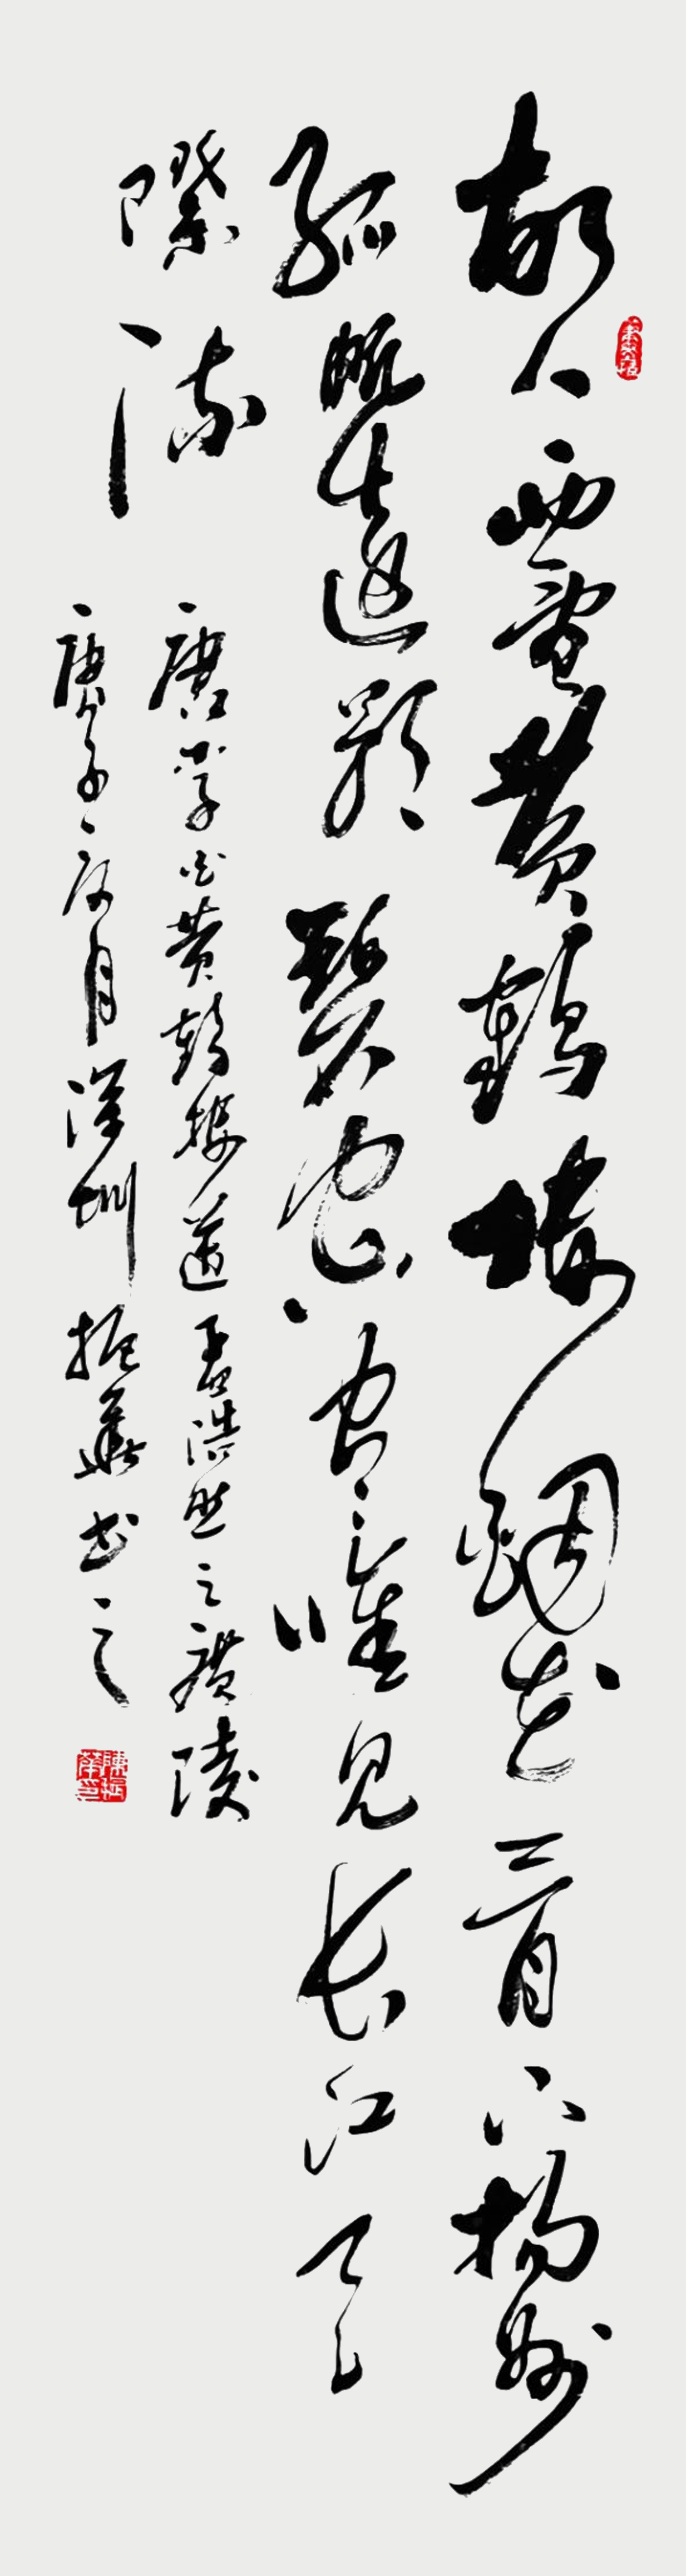 故人西辭黃鶴樓煙花三月下揚州
孤帆遠影碧空盡唯見長江天
際流
唐李白黃鶴樓送孟浩然之廣陵
庚子夏月深圳振華书之
陳振華印